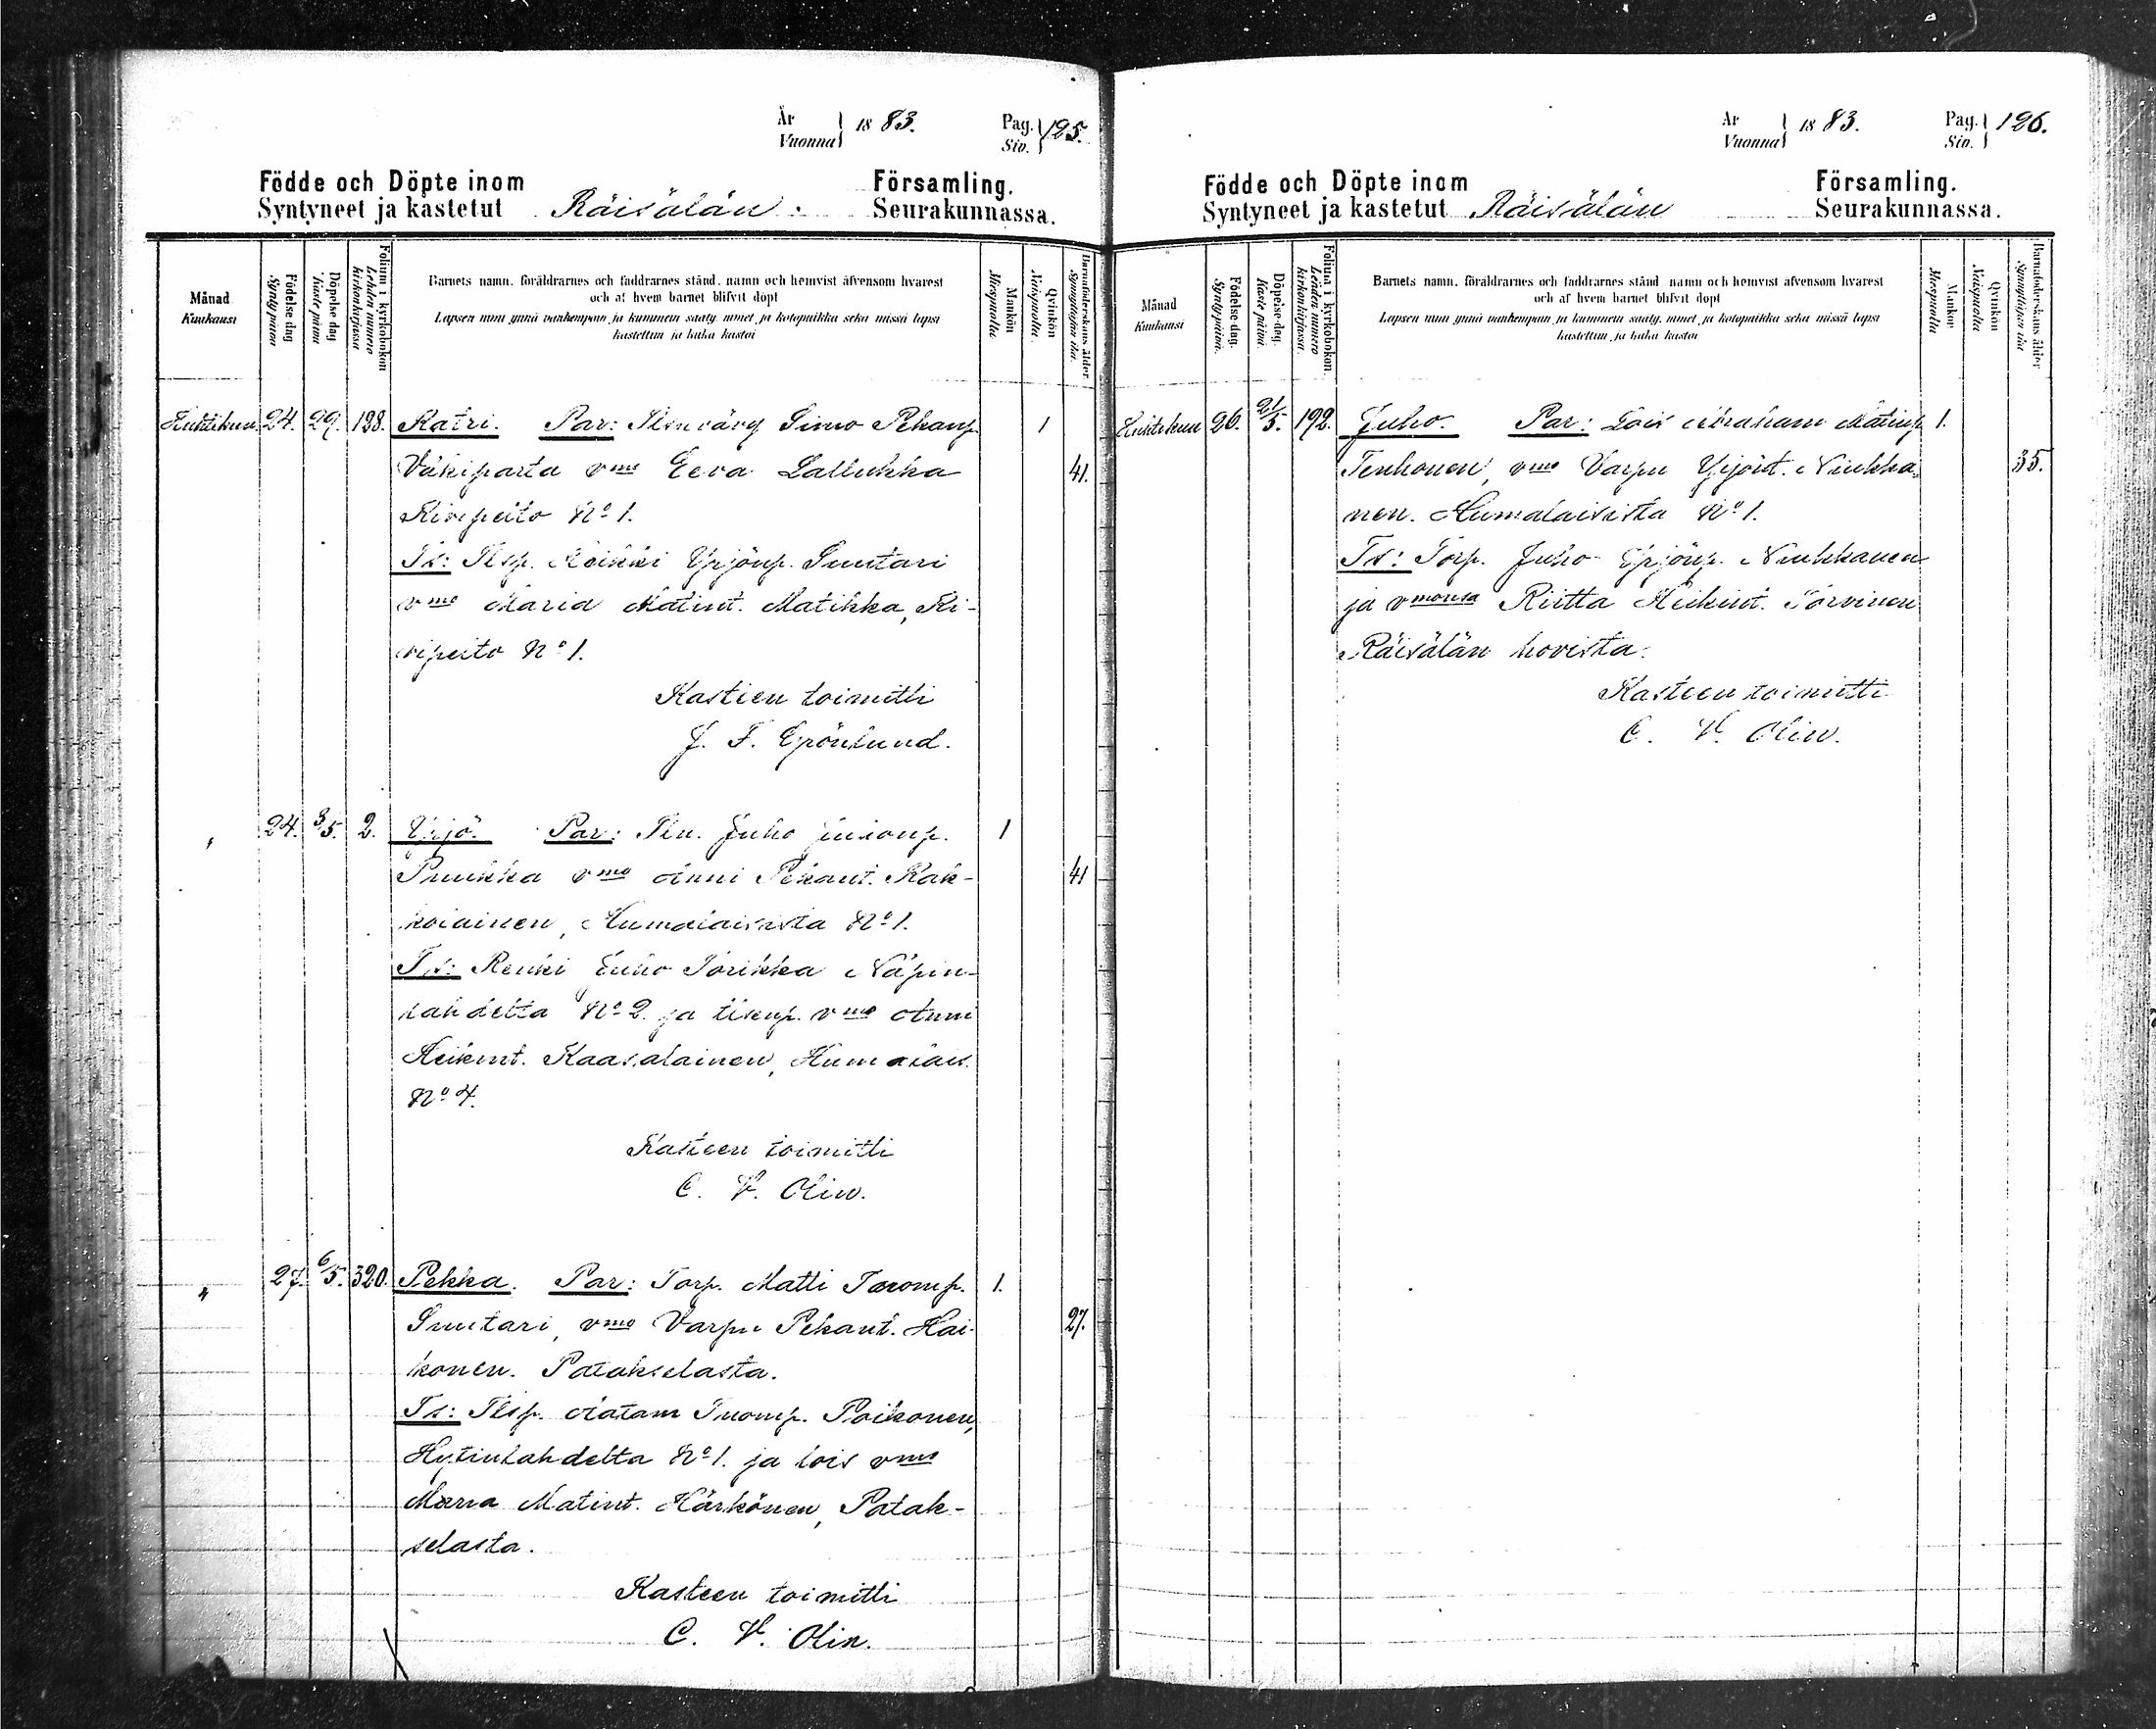 År
Vuonna } 18 83.
Pag.
Siv. } 195.
Födde och Döpte inom Församling.
Syntyneet ja kastetut Räisälän Seurakunnassa.
Månad
Kuukausi
Födelse dag
Syntypäivä
Döpelse dag
Kaste päivä
Folium i kyrkoboken
Lehden numero
kirkonkirjassa
Barnets namn, föräldrarnes och faddrarnes stånd, namn och hemvist äfvensom hvarest
och af hvem barnet blifvit döpt
Lapsen nimi ynnä vanhempain ja kummein sääty, nimet ja kotopaikka sekä missä lapsi
kastettiin ja kuka kastoi
Mankön
Miespuolta
Qvinkön
Naispuolta
Barnaföderskans ålder
Synnyttäjän ikä
Huhtikuu. 24. 29. 198. Katri. Par: Simo Pekanp. 1
Väkiparta vmo Eeva Lallukka 41.
Kiripeito No 1.
Ts: Heikki Yrjönp. Suutari
vmo Maria Matint. Matikka, Ki-
ripeito No 1.
Kasteen toimitti
J. F. Grönlund.
" 24. 3/5. 2. Yrjö. Par: Juho 1
Puukka vmo Anni Pekant. Kak-
koiainen, Humalaisista No 1. 41
Ts: Renki Juho Torikka Näpin-
lahdelta No 2. ja vmo Anni
Heikint. Kaasalainen, Humalais.
No 4.
Kasteen toimitti
C. V. Olin.
" 27. 6/5. 320. Pekka. Par: Torp. Matti Tuomp. 1.
Suutari, vmo Varpu Pekant. Hai- 27.
konen. Patakselasta.
Ts: Aatam Tuomp. Poikonen,
Hytinlahdelta No 1. ja lois vmo
Maria Matint. Härkönen, Patak-
selasta.
Kasteen toimitti
C. V. Olin.
År
Vuonna } 18 83.
Pag.
Siv. } 196.
Födde och Döpte inom Församling.
Syntyneet ja kastetut Räisälän Seurakunnassa.
Månad
Kuukausi
Födelse dag.
Syntypäivä.
Döpelse dag.
Kaste päivä.
Folium i kyrkoboken.
Lehden numero
kirkonkirjassa.
Barnets namn, föräldrarnes och faddrarnes stånd, namn och hemvist äfvensom hvarest
och af hvem barnet blifvit döpt
Lapsen nimi ynnä vanhempain ja kummein sääty, nimet ja kotopaikka sekä missä lapsi
kastettiin ja kuka kastoi
Mankön
Miespuolta
Qvinkön
Naispuolta
Barnaföderskans ålder
Synnyttäjän ikä
Huhtikuu 26. 21/5. 192. Juho. Par: Lois Abraham Matinp. 1.
Tenhonen, vmo Varpu Yrjönt. Niukka- 35.
nen. Humalaisista No 1.
Ts: Torp. Juho Yrjönp. Niukkanen
ja vmonsa Riitta Heikint. Torvinen
Räisälän hovista.
Kasteen toimitti
C. V. Olin.